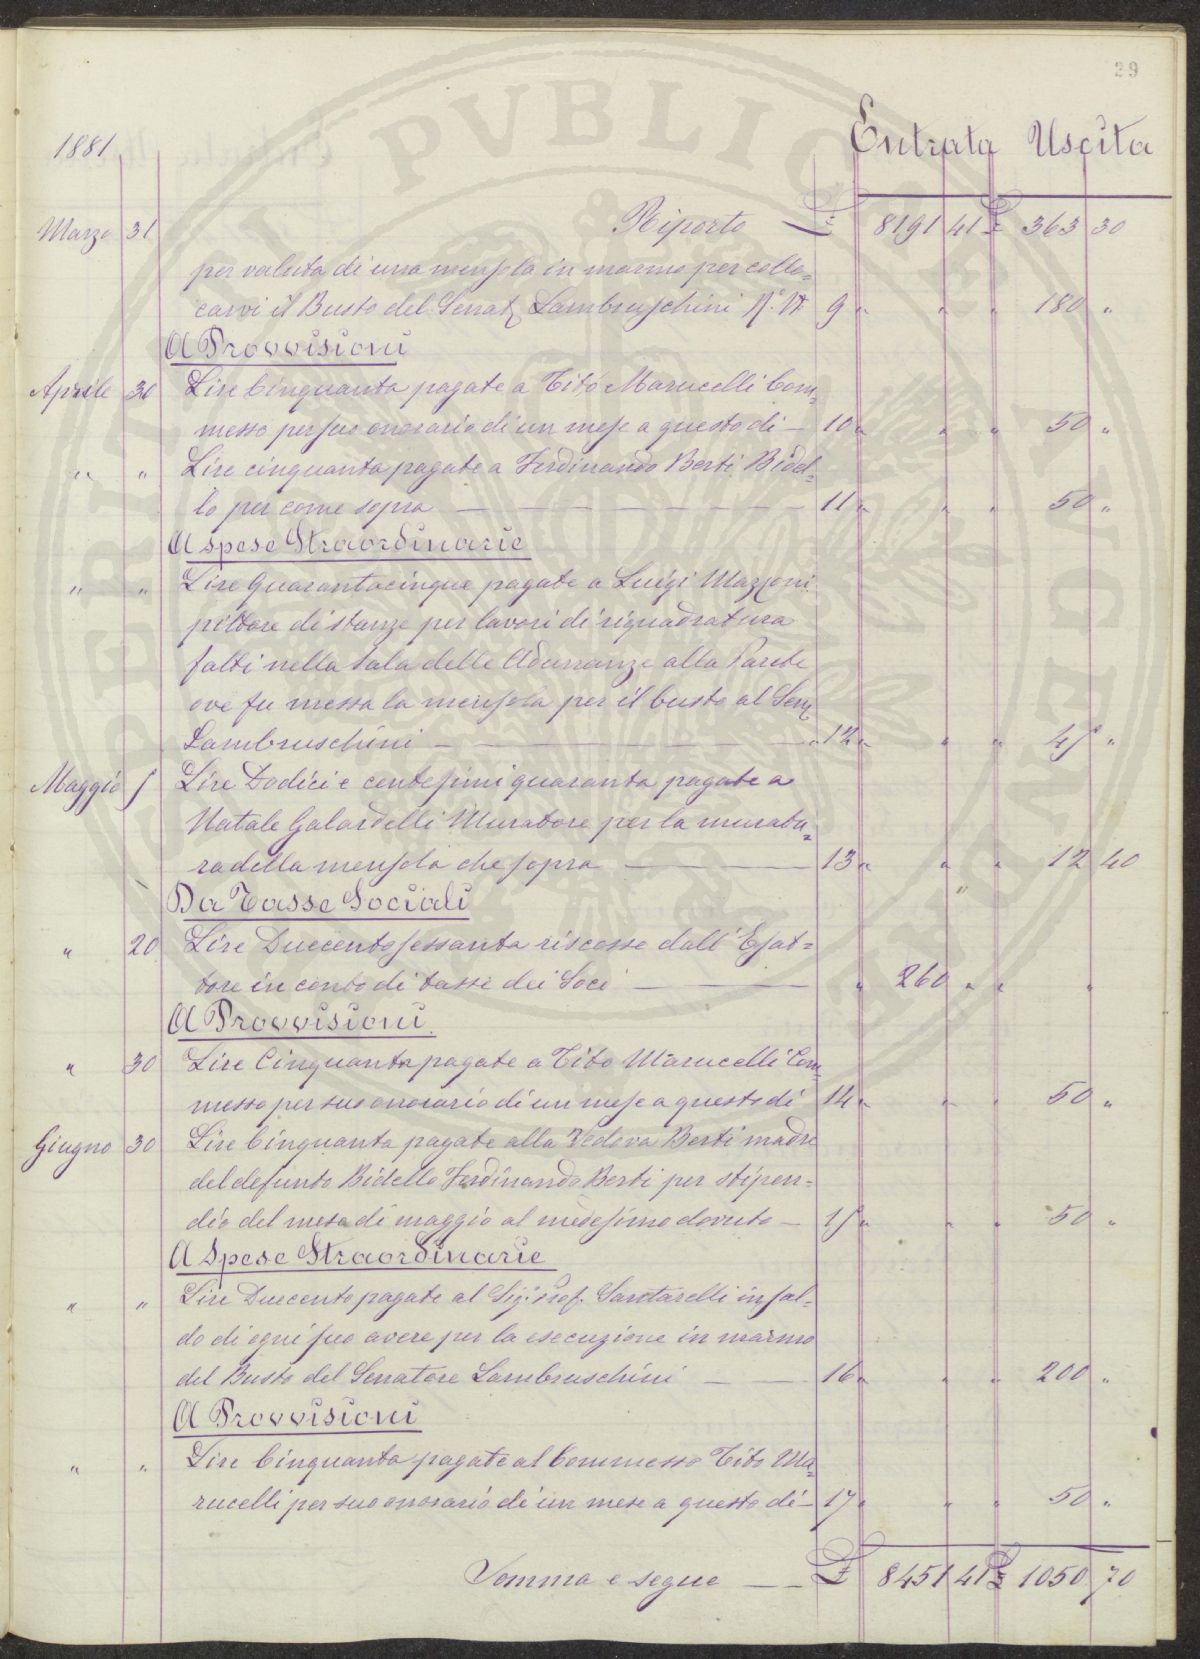 29
1881 Entrata Uscita
Marzo 31 Riporto — £ 8191 41 £ 363 30
per valuta di una mensola in marmo per collo=
carvi il Busto del Senat. Lambruschini N.° 9 " " " 180 "
A Provvisioni
Aprile 30 Lire Cinquanta pagate a Tito Marucelli Com=
messo per suo onorario di un mese a questo di — 10 " " " 50 "
" " Lire cinquanta pagate a Ferdinando Berti Bidel=
lo per come sopra — 11 " " " 50 "
A spese Straordinarie
" " Lire Quarantacinque pagate a Luigi Mazzoni
pittore di stanze per lavori di riquadratura
fatti nella Sala delle Adunanze alla Parete
ove fu messa la mensola per il busto al Sen.
Lambruschini — 12 " " " 45 "
Maggio 5 Lire Dodici e centesimi quaranta pagate a
Natale Galardelli Muratore per la muratu=
ra della mensola che sopra — 13 " " " 12 40
Da Tasse Sociali
" 20 Lire Duecentosessanta riscosse dall' Esat=
tore in conto di tasse dei Soci — " 260 " " "
A Provvisioni
" 30 Lire Cinquanta pagate a Tito Marucelli Com=
messo per suo onorario di un mese a questo di 14 " " " 50 "
Giugno 30 Lire Cinquanta pagate alla Vedova Berti madre
del defunto Bidello Ferdinando Berti per stipen=
dio del mese di maggio al medesimo dovuto — 15 " " " 50 "
A Spese Straordinarie
" " Lire Duecento pagate al Sig. Prof. Santarelli in sal=
do di ogni suo avere per la esecuzione in marmo
del Busto del Senatore Lambruschini — 16 " " " 200 "
A Provvisioni
" " Lire Cinquanta pagate al Commesso Tito Ma=
rucelli per suo onorario di un mese a questo di — 17 " " " 50 "
Somma e segue — £ 8451 41 £ 1050 70